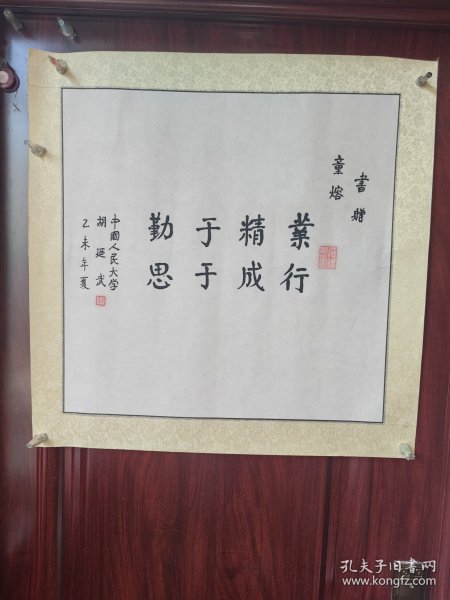 书赠
童熔
業行
精成
于于
勤思
中國人民大学
胡延武
乙未年夏
孔夫子旧书网
www.kongfz.com